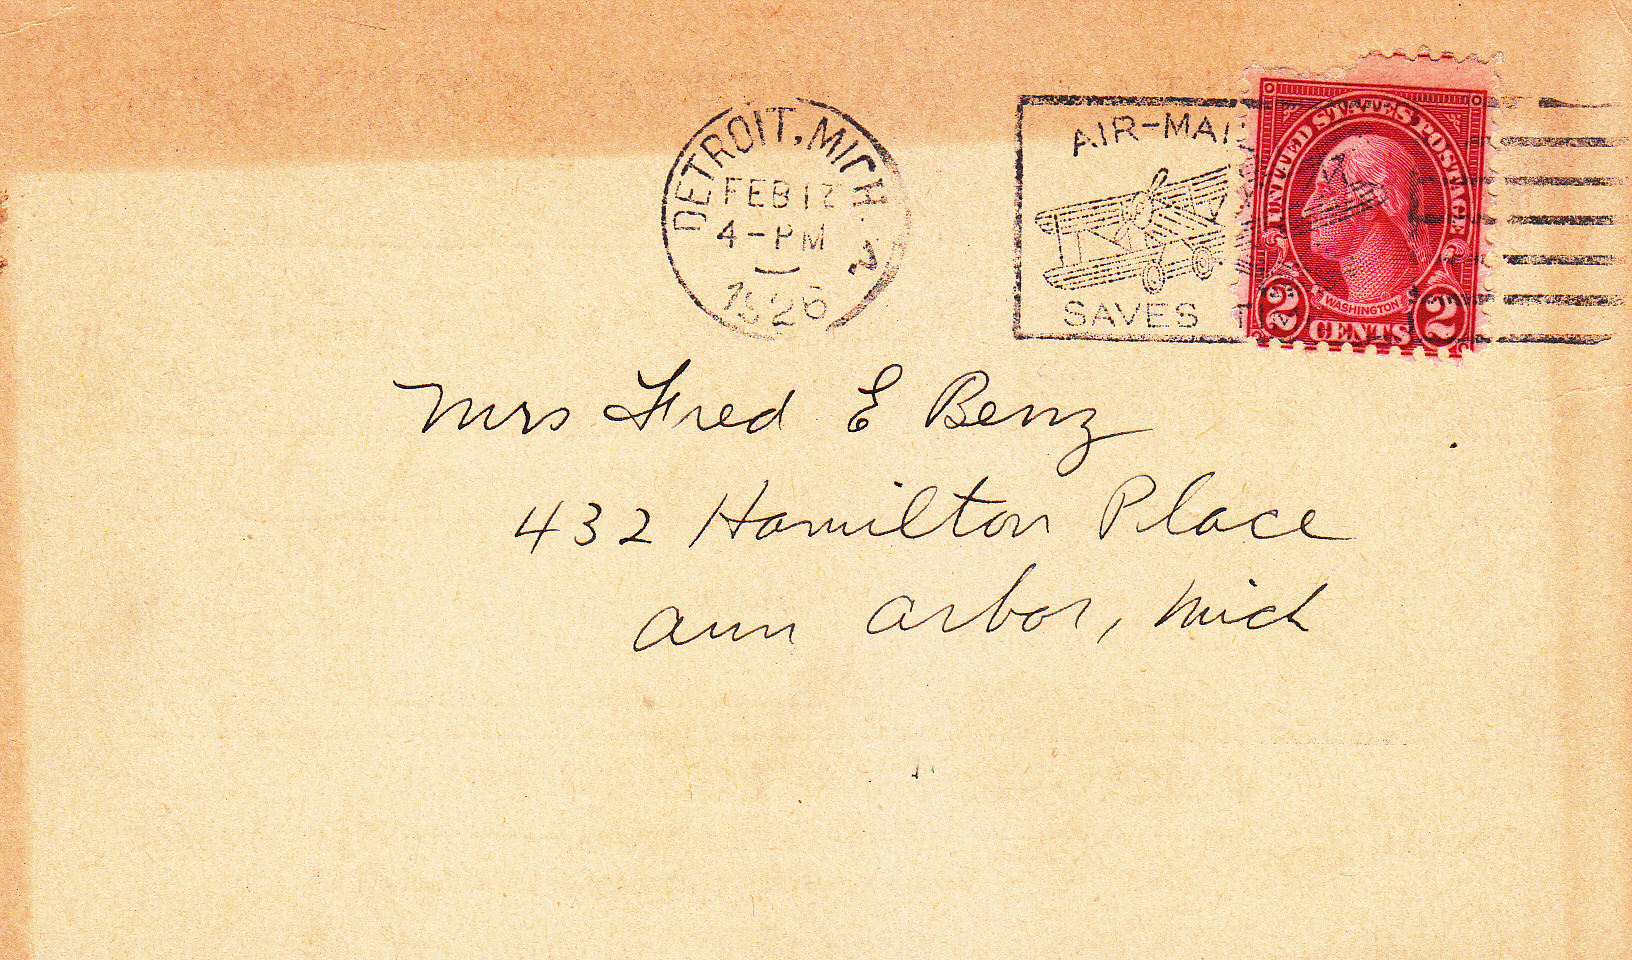 DETROIT, MICH.
FEB 12
4-PM
1926
AIR-MAI
SAVES T
UNITED STATES POSTAGE
WASHINGTON
2 CENTS 2
Mrs Fred E Benz
432 Hamilton Place
Ann Arbor, Mich